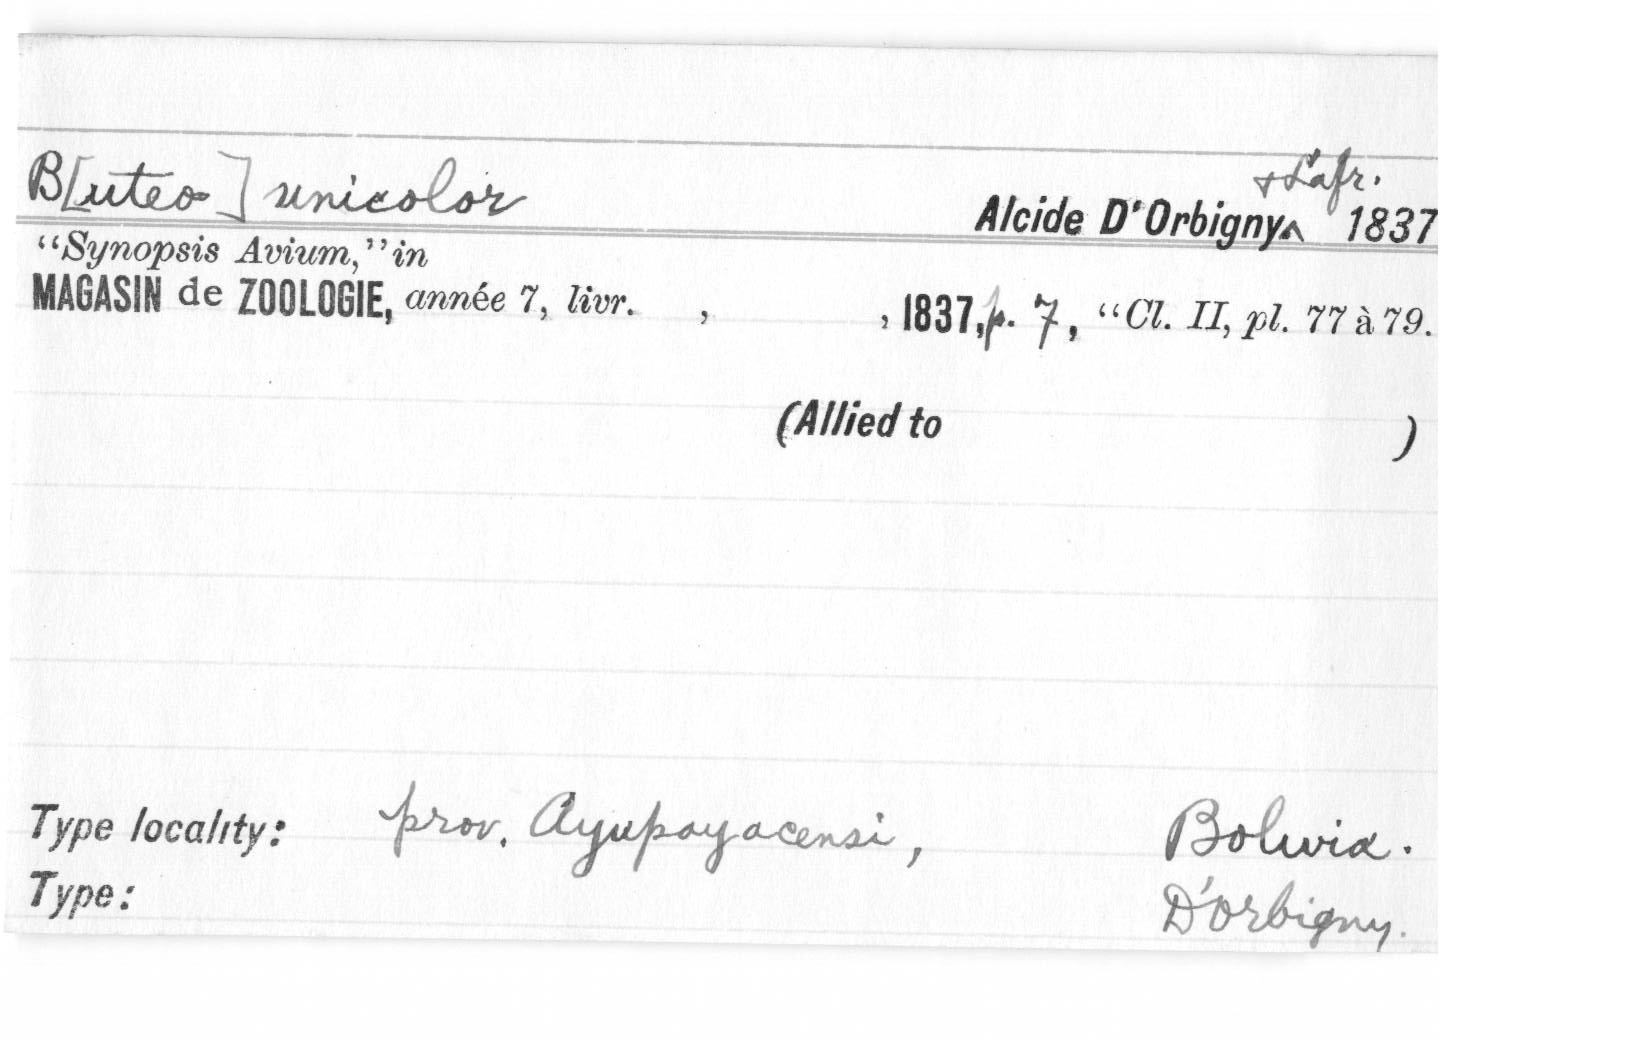 B[uteo] unicolor
Alcide D'Orbigny ‸ & Lafr. 1837
"Synopsis Avium," in
MAGASIN de ZOOLOGIE, année 7, livr. , , 1837, p. 7, "Cl. II, pl. 77 à 79.
(Allied to )
Type locality: prov. Ayupayacensi, Bolivia.
Type: D'Orbigny.